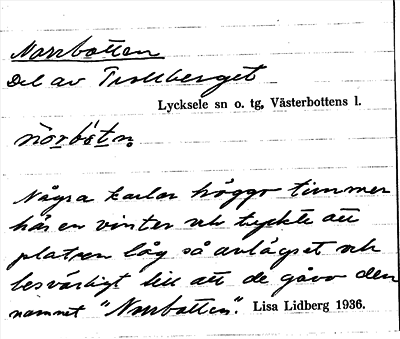 Norrbotten
Del av Trollberget
Lycksele sn o. tg, Västerbottens l.
Några karlar höggo timmer
här en vinter och tyckte att
platsen låg så avlägset och
besvärligt till att de gåvo den
namnet "Norrbotten". Lisa Lidberg 1936.